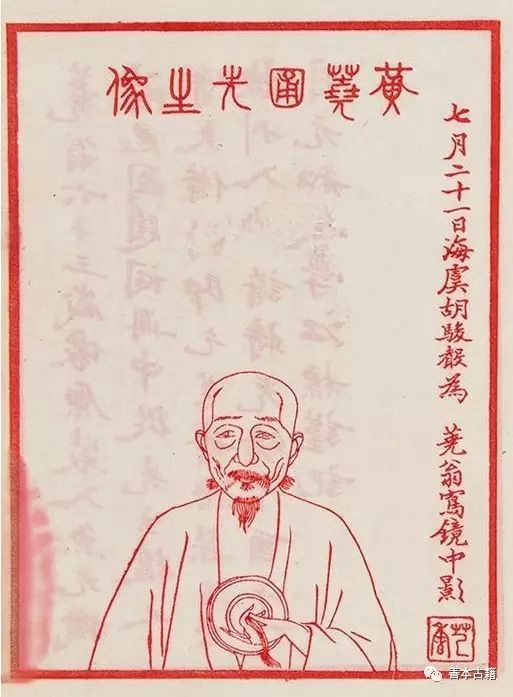 黃蕘圃先生像
七月二十一日海虞胡駿聲為
蕘翁寫鏡中影
善本古籍